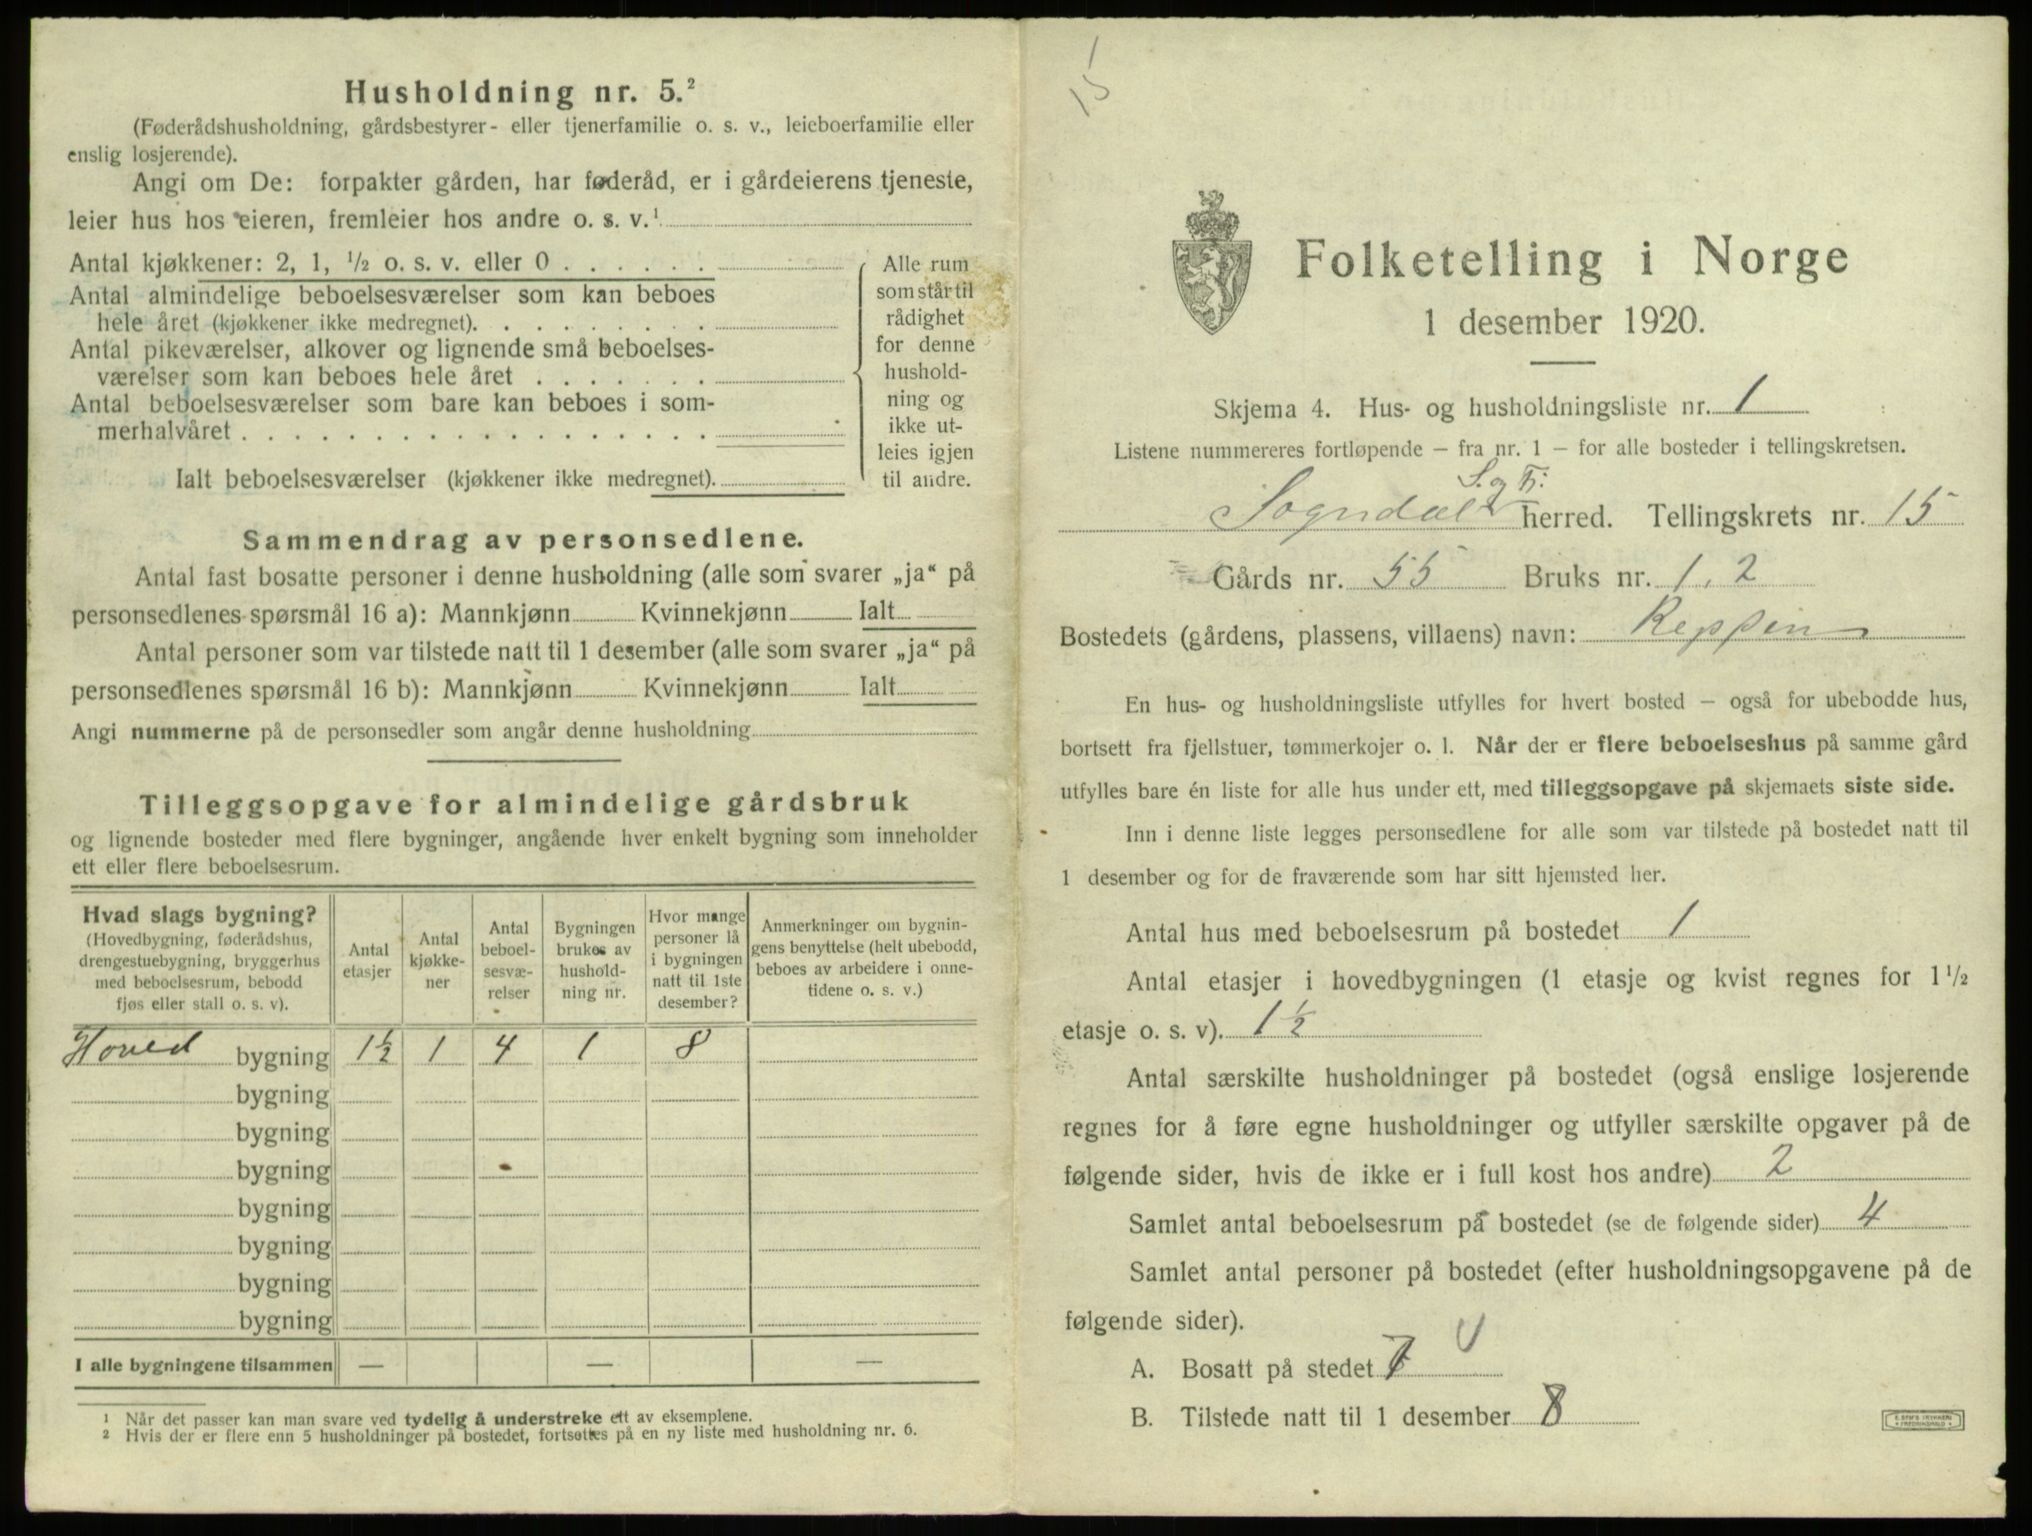 Husholdning nr. 5.²
(Føderådshusholdning, gårdsbestyrer- eller tjenerfamilie o. s. v., leieboerfamilie eller
enslig losjerende).
Angi om De: forpakter gården, har føderåd, er i gårdeierens tjeneste,
leier hus hos eieren, fremleier hos andre o. s. v.¹
Antal kjøkkener: 2, 1, ½ o. s. v. eller 0
Antal almindelige beboelsesværelser som kan beboes
hele året (kjøkkener ikke medregnet).
Antal pikeværelser, alkover og lignende små beboelses-
værelser som kan beboes hele året
Antal beboelsesværelser som bare kan beboes i som-
merhalvåret
Ialt beboelsesværelser (kjøkkener ikke medregnet).
Alle rum
som står til
rådighet
for denne
hushold-
ning og
ikke ut-
leies igjen
til andre.
Sammendrag av personsedlene.
Antal fast bosatte personer i denne husholdning (alle som svarer „ja“ på
personsedlenes spørsmål 16 a): Mannkjønn Kvinnekjønn Ialt
Antal personer som var tilstede natt til 1 desember (alle som svarer „ja“ på
personsedlenes spørsmål 16 b): Mannkjønn Kvinnekjønn Ialt
Angi nummerne på de personsedler som angår denne husholdning
Tilleggsopgave for almindelige gårdsbruk
og lignende bosteder med flere bygninger, angående hver enkelt bygning som inneholder
ett eller flere beboelsesrum.
Hvad slags bygning?
(Hovedbygning, føderådshus,
drengestuebygning, bryggerhus
med beboelsesrum, bebodd
fjøs eller stall o. s. v).
Antal
etasjer
Antal
kjøkke-
ner
Antal
beboel-
sesvæ-
relser
Bygningen
brukes av
hushold-
ning nr.
Hvor mange
personer lå
i bygningen
natt til 1ste
desember?
Anmerkninger om bygnin-
gens benyttelse (helt ubebodd,
beboes av arbeidere i onne-
tidene o. s. v.)
Hoved bygning 1½ 1 4 1 8
bygning
bygning
bygning
bygning
bygning
bygning
bygning
I alle bygningene tilsammen — — —
1 Når det passer kan man svare ved tydelig å understreke ett av eksemplene.
2 Hvis der er flere enn 5 husholdninger på bostedet, fortsettes på en ny liste med husholdning nr. 6.
15
Folketelling i Norge
1 desember 1920.
Skjema 4. Hus- og husholdningsliste nr. 1
Listene nummereres fortløpende — fra nr. 1 — for alle bosteder i tellingskretsen.
S. og Fj.
Sogndal herred. Tellingskrets nr. 15
Gårds nr. 55 Bruks nr. 1, 2
Bostedets (gårdens, plassens, villaens) navn: Reppen
En hus- og husholdningsliste utfylles for hvert bosted — også for ubebodde hus,
bortsett fra fjellstuer, tømmerkojer o. l. Når der er flere beboelseshus på samme gård
utfylles bare én liste for alle hus under ett, med tilleggsopgave på skjemaets siste side.
Inn i denne liste legges personsedlene for alle som var tilstede på bostedet natt til
1 desember og for de fraværende som har sitt hjemsted her.
Antal hus med beboelsesrum på bostedet 1
Antal etasjer i hovedbygningen (1 etasje og kvist regnes for 1½
etasje o. s. v). 1½
Antal særskilte husholdninger på bostedet (også enslige losjerende
regnes for å føre egne husholdninger og utfyller særskilte opgaver på de
følgende sider, hvis de ikke er i full kost hos andre) 2
Samlet antal beboelsesrum på bostedet (se de følgende sider) 4
Samlet antal personer på bostedet (efter husholdningsopgavene på de
følgende sider).
A. Bosatt på stedet 7
B. Tilstede natt til 1 desember 8